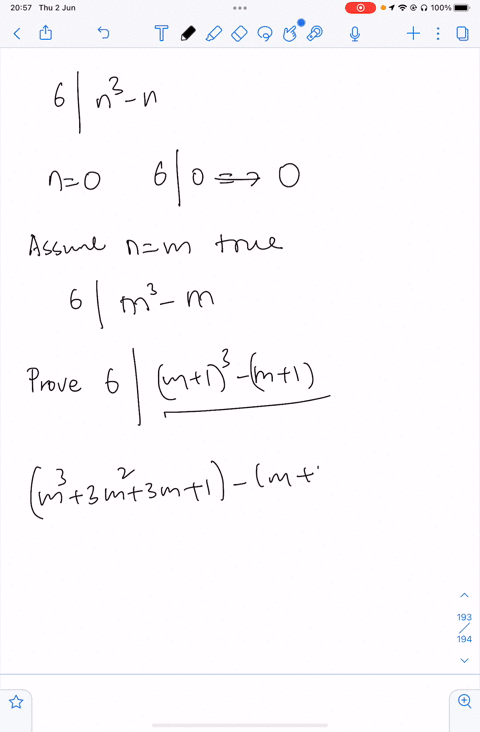 20:57 Thu 2 Jun 100%
6 | n³-n
n=0 6 | 0 ⟹ 0
Assume n=m true
6 | m³-m
Prove 6 | (m+1)³-(m+1)
(m³+3m²+3m+1)-(m+
193
194